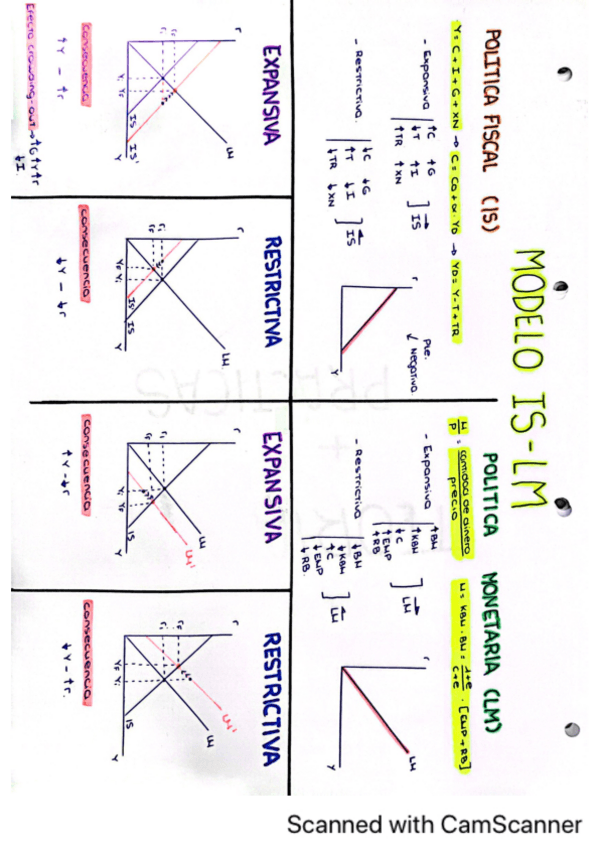 MODELO IS-LM
POLITICA FISCAL (IS)
Y = C + I + G + XN → C = Co + α · YD → YD = Y - T + TR
- Expansiva
↑C ↑G
↓T ↑I
↑TR ↑XN
] IS →
- Restrictiva.
↓C ↓G
↑T ↓I
↓TR ↓XN
] IS ←
r
Pte.
Negativa
Y
POLITICA MONETARIA (LM)
M/P = cantidad de dinero / precio
M = KBM · BM = 1+e / c+e · [EMP + RB]
- Expansiva
↑BM
↑KBM
↓C
↑EMP
] LM →
- Restrictiva
↓BM
↓KBM
↑C
↓EMP
↓RB.
] LM ←
r
LM
Y
EXPANSIVA
r
LM
IS
IS'
Y
consecuencia
↑Y - ↑r
Efecto crowding-out → ↑G ↑Y ↑r
↓I.
RESTRICTIVA
r
LM
IS'
IS
Y
consecuencia
↓Y - ↓r
EXPANSIVA
r
LM
LM'
IS
Y
consecuencia
↑Y - ↓r
RESTRICTIVA
r
LM'
LM
IS
Y
consecuencia
↓Y - ↑r.
PRACTICAS
+
Scanned with CamScanner